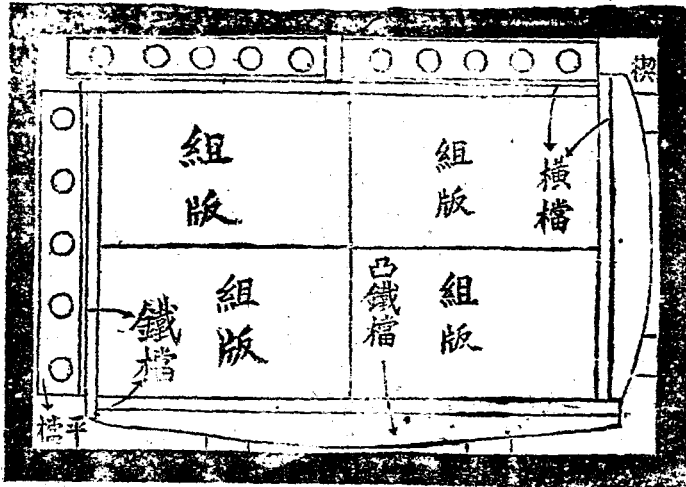 楔
組版
組版
橫檔
組版
凸鐵檔
組版
鐵檔
平檔